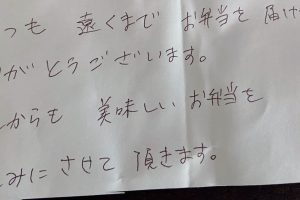 つも 遠くまで お弁当を 届け
がとうございます。
からも 美味しい お弁当を
みに させて 頂きます。